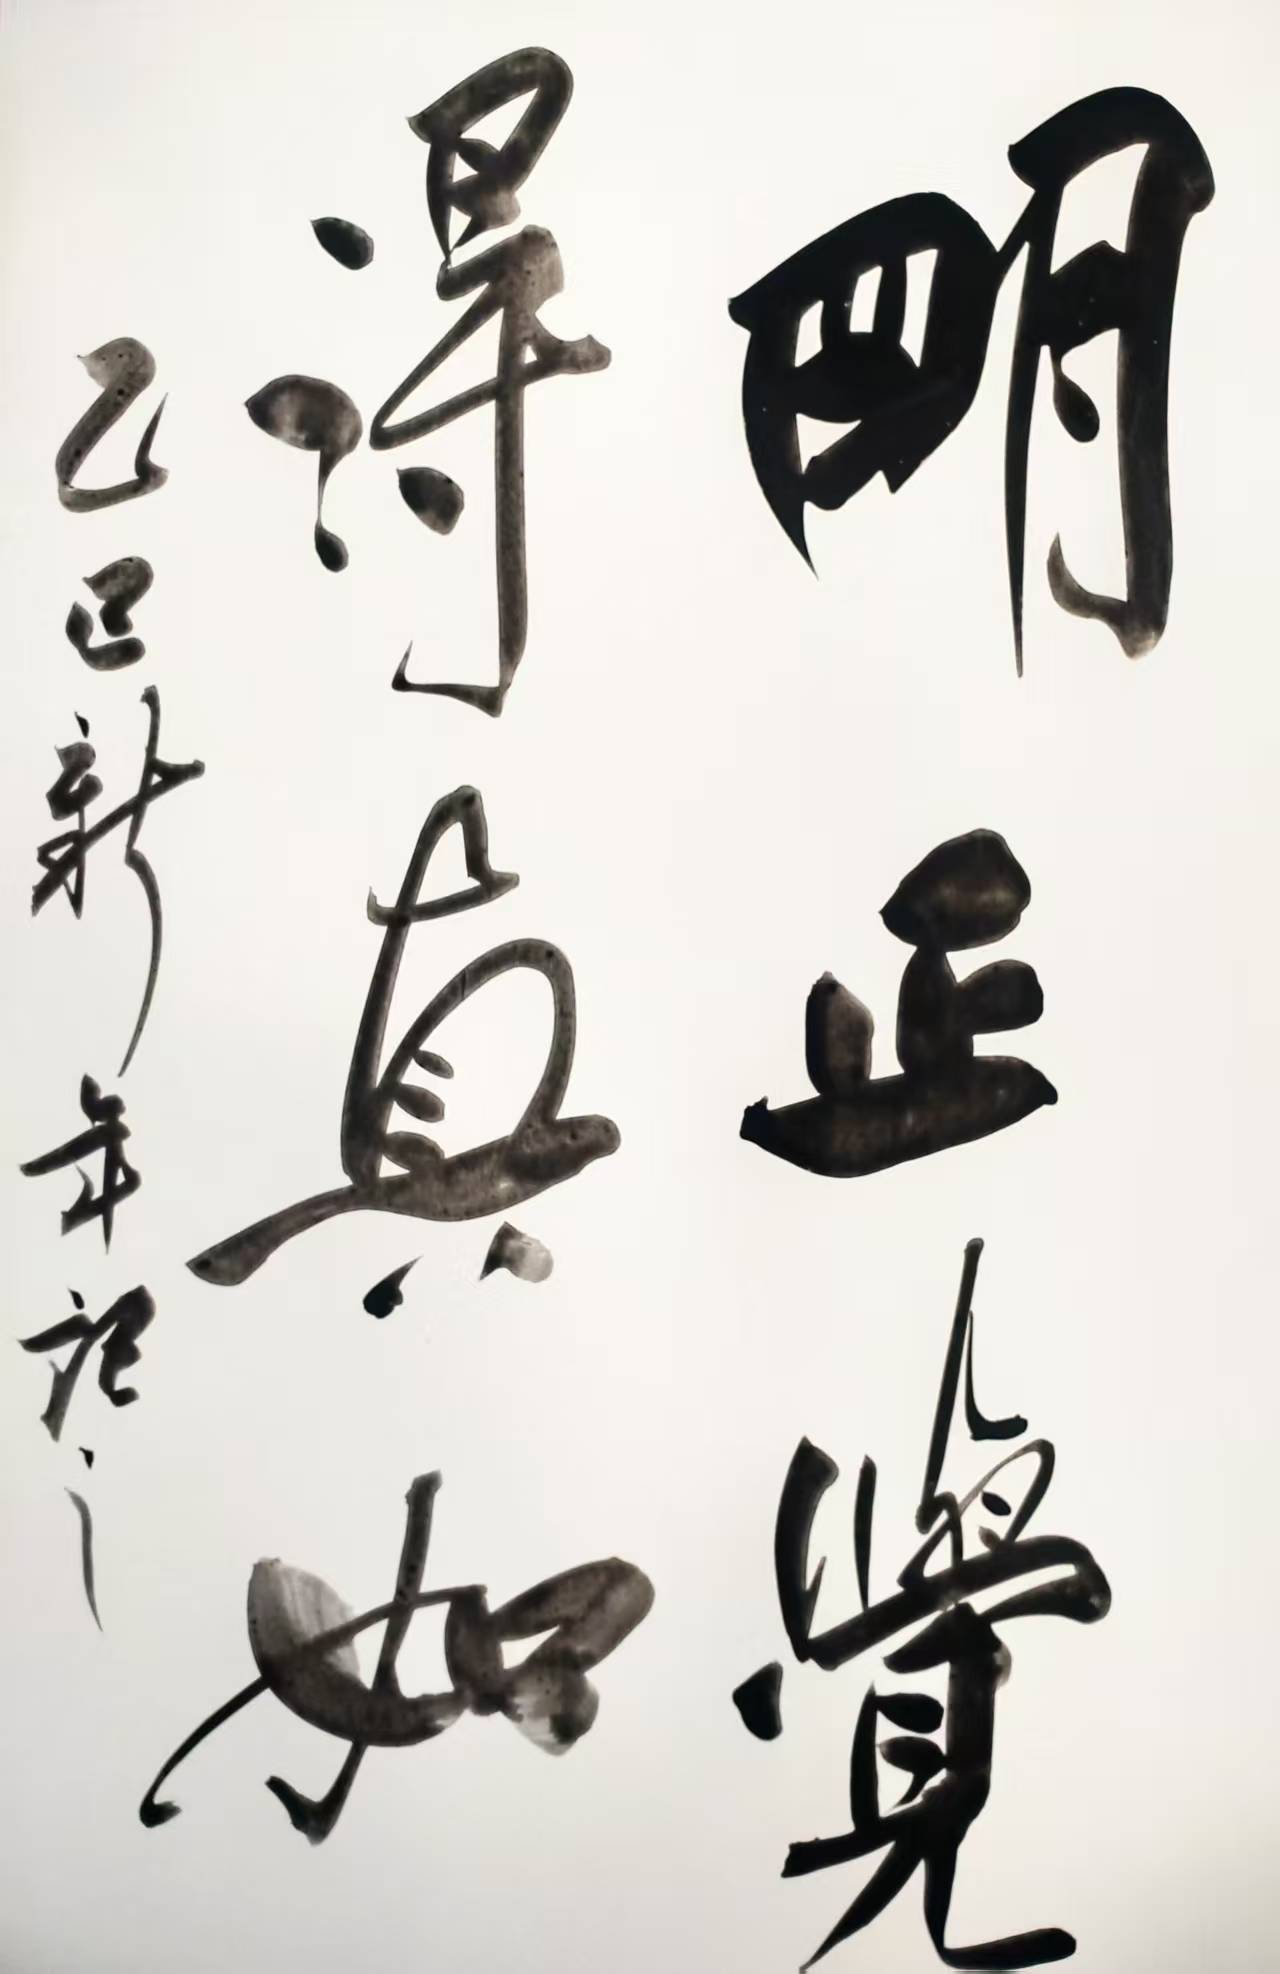 明正覺
得真如
乙巳新年記之